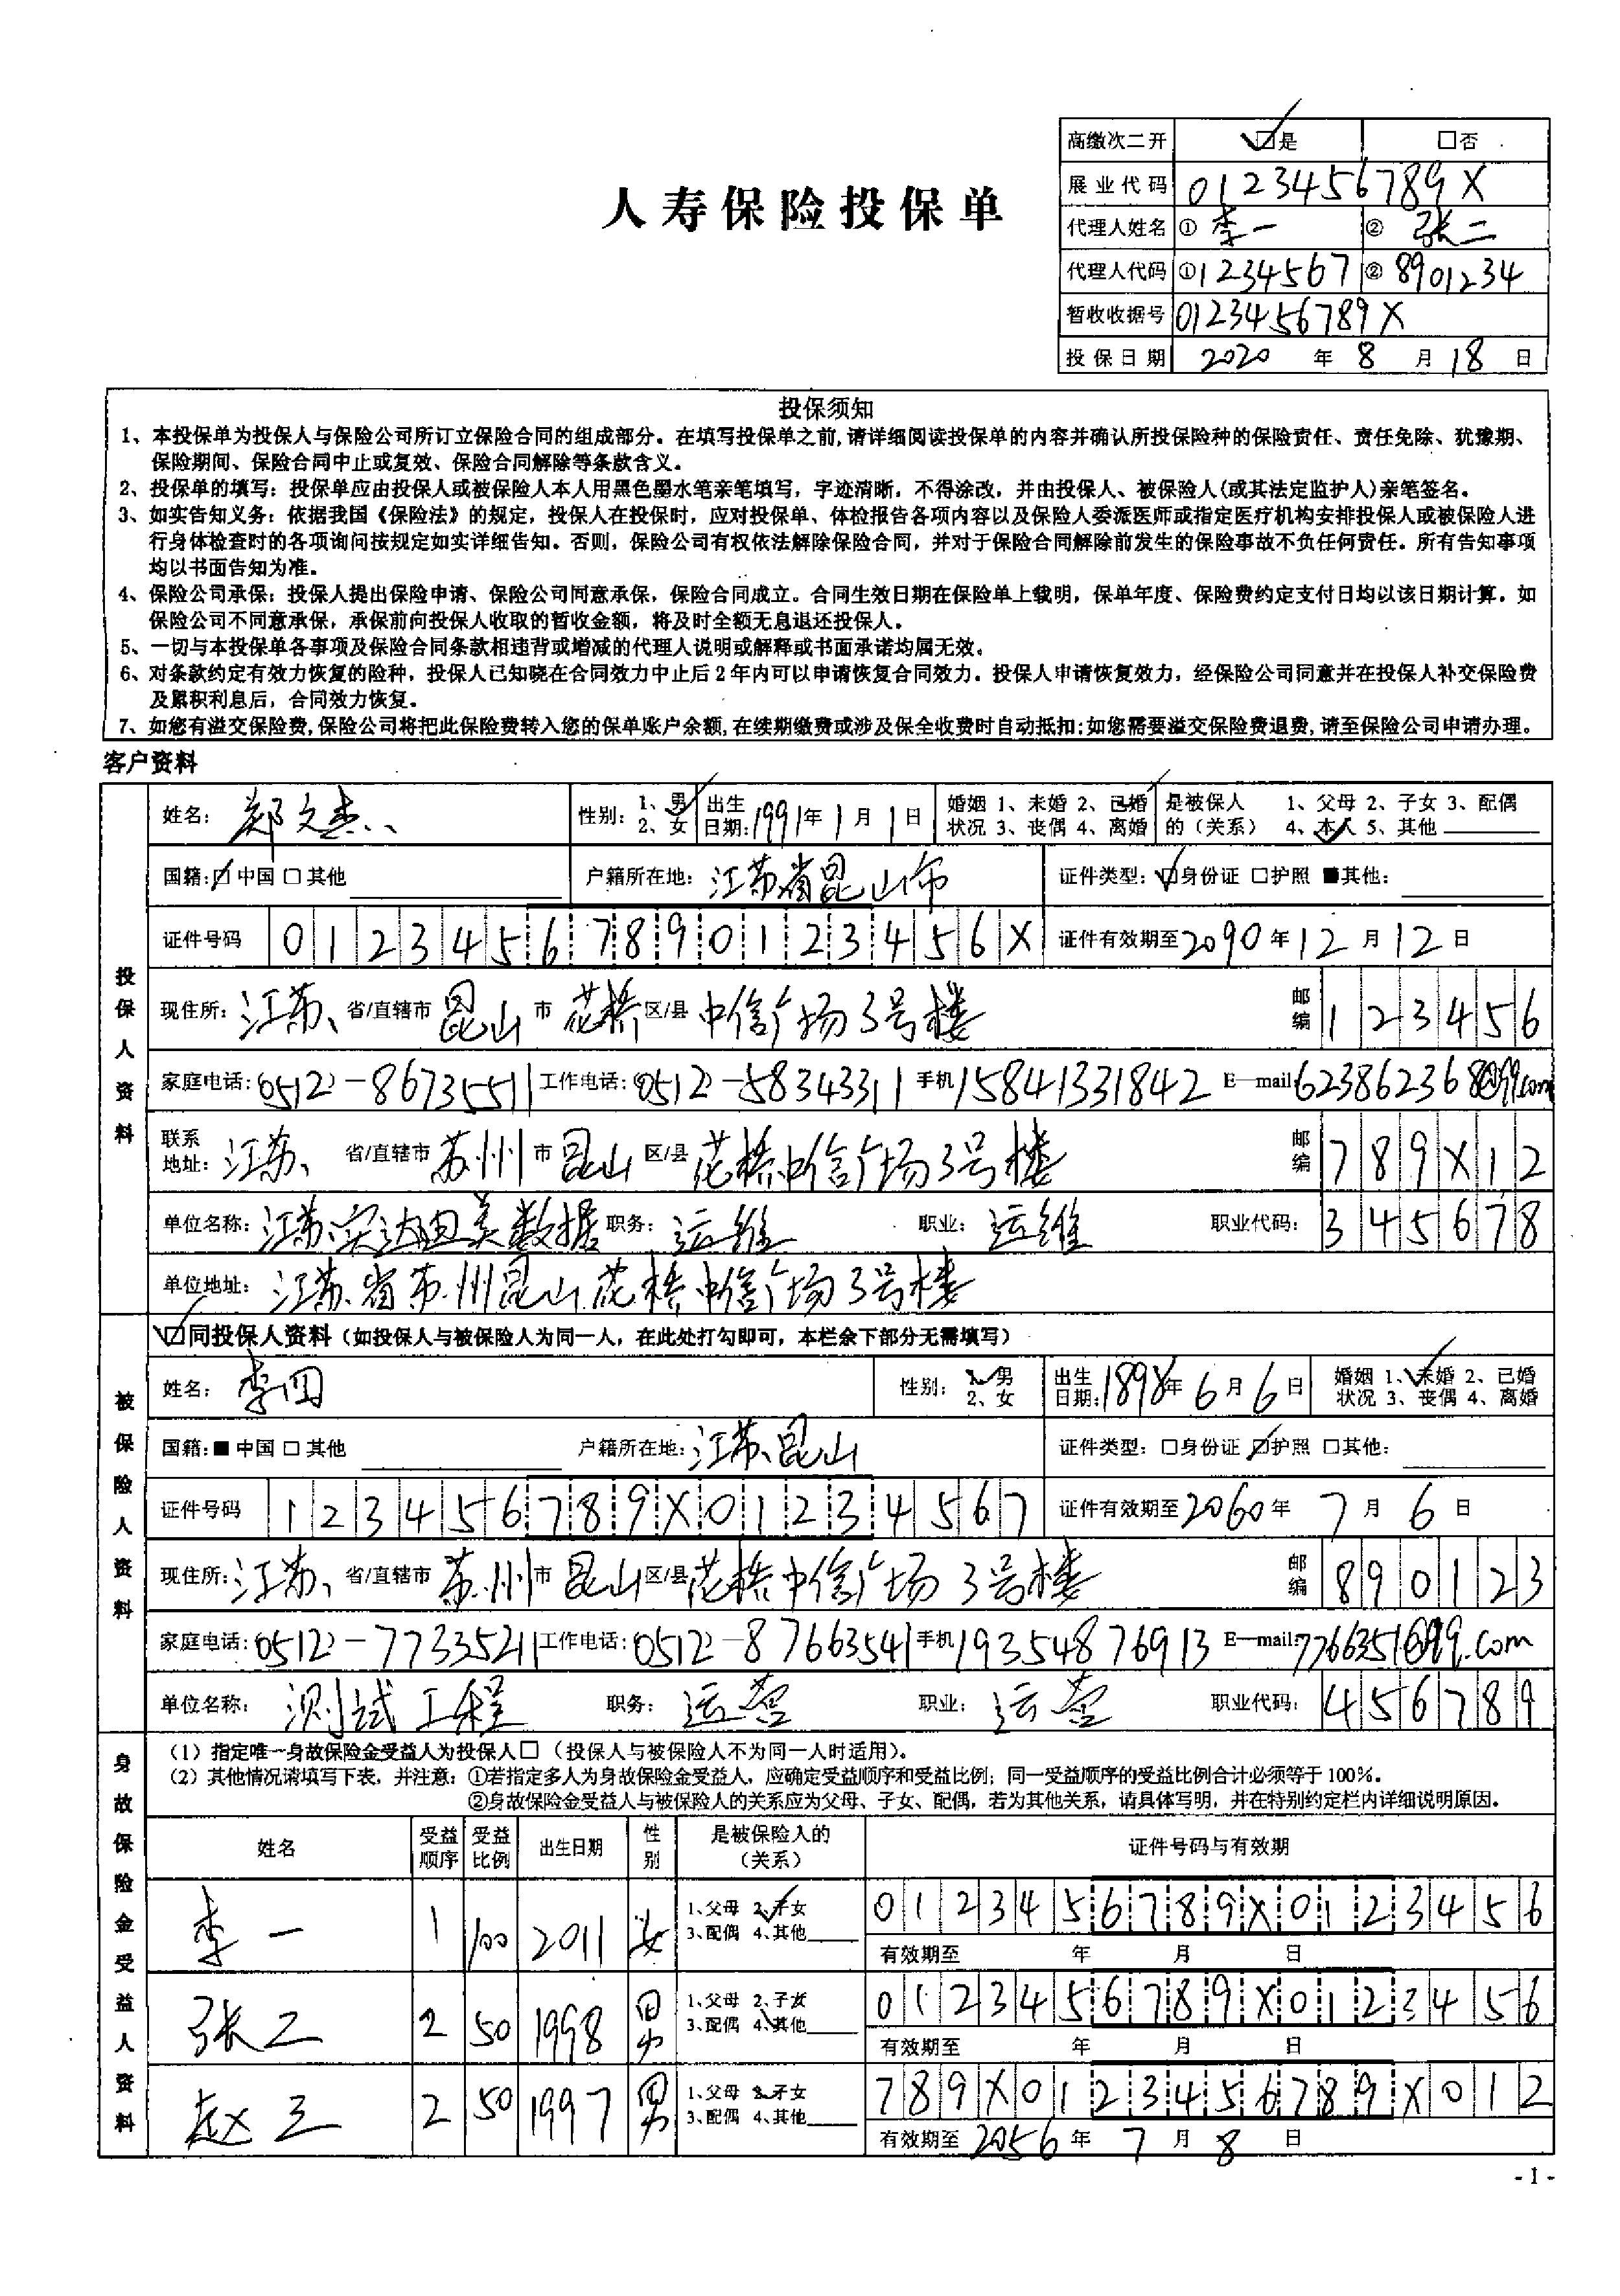 高缴次二开 ☑是 □否
人寿保险投保单
展业代码 0123456789X
代理人姓名 ① 李一 ② 张二
代理人代码 ①1234567 ② 8901234
暂收收据号 0123456789X
投保日期 2020 年 8 月 18 日
投保须知
1、本投保单为投保人与保险公司所订立保险合同的组成部分。在填写投保单之前,请详细阅读投保单的内容并确认所投保险种的保险责任、责任免除、犹豫期、
保险期间、保险合同中止或复效、保险合同解除等条款含义。
2、投保单的填写：投保单应由投保人或被保险人本人用黑色墨水笔亲笔填写，字迹清晰，不得涂改，并由投保人、被保险人(或其法定监护人)亲笔签名。
3、如实告知义务：依据我国《保险法》的规定，投保人在投保时，应对投保单、体检报告各项内容以及保险人委派医师或指定医疗机构安排投保人或被保险人进
行身体检查时的各项询问按规定如实详细告知。否则，保险公司有权依法解除保险合同，并对于保险合同解除前发生的保险事故不负任何责任。所有告知事项
均以书面告知为准。
4、保险公司承保：投保人提出保险申请、保险公司同意承保，保险合同成立。合同生效日期在保险单上载明，保单年度、保险费约定支付日均以该日期计算。如
保险公司不同意承保，承保前向投保人收取的暂收金额，将及时全额无息退还投保人。
5、一切与本投保单各事项及保险合同条款相违背或增减的代理人说明或解释或书面承诺均属无效。
6、对条款约定有效力恢复的险种，投保人已知晓在合同效力中止后2年内可以申请恢复合同效力。投保人申请恢复效力，经保险公司同意并在投保人补交保险费
及累积利息后，合同效力恢复。
7、如您有溢交保险费,保险公司将把此保险费转入您的保单账户余额,在续期缴费或涉及保全收费时自动抵扣;如您需要溢交保险费退费,请至保险公司申请办理。
客户资料
投保人资料
姓名：郑文杰 性别：1、男 2、女 出生日期：1991年1月1日 婚姻状况 1、未婚 2、已婚 3、丧偶 4、离婚 是被保人的（关系） 1、父母 2、子女 3、配偶 4、本人 5、其他
国籍：☑中国 □其他 户籍所在地：江苏省昆山市 证件类型：☑身份证 □护照 ■其他：
证件号码 01234567890123456X 证件有效期至2090年12月12日
现住所：江苏 省/直辖市 昆山 市 花桥 区/县 中信广场3号楼 邮编 123456
家庭电话：0512-86735511 工作电话：0512-58343311 手机15841331842 E-mail:623862368@qq.com
联系地址：江苏 省/直辖市 苏州 市 昆山 区/县 花桥中信广场3号楼 邮编 789X12
单位名称：江苏实达迪美数据 职务：运维 职业：运维 职业代码：345678
单位地址：江苏省苏州昆山花桥中信广场3号楼
被保险人资料
☑同投保人资料（如投保人与被保险人为同一人，在此处打勾即可，本栏余下部分无需填写）
姓名：李四 性别：1、男 2、女 出生日期：1898年6月6日 婚姻状况 1、未婚 2、已婚 3、丧偶 4、离婚
国籍：■中国 □其他 户籍所在地：江苏昆山 证件类型：□身份证 ☑护照 □其他：
证件号码 123456789X01234567 证件有效期至2060年7月6日
现住所：江苏 省/直辖市 苏州 市 昆山 区/县 花桥中信广场3号楼 邮编 890123
家庭电话：0512-77335211 工作电话：0512-87663541 手机19354876913 E-mail:7766351@qq.com
单位名称：测试工程 职务：运营 职业：运营 职业代码：456789
身故保险金受益人资料
（1）指定唯一身故保险金受益人为投保人□（投保人与被保险人不为同一人时适用）。
（2）其他情况请填写下表，并注意：①若指定多人为身故保险金受益人，应确定受益顺序和受益比例；同一受益顺序的受益比例合计必须等于100%。
②身故保险金受益人与被保险人的关系应为父母、子女、配偶，若为其他关系，请具体写明，并在特别约定栏内详细说明原因。
姓名 受益顺序 受益比例 出生日期 性别 是被保险人的（关系） 证件号码与有效期
李一 1 100 2011 女 1、父母 2、子女 3、配偶 4、其他 0123456789X0123456
有效期至 年 月 日
张二 2 50 1998 男 1、父母 2、子女 3、配偶 4、其他 0123456789X0123456
有效期至 年 月 日
赵三 2 50 1997 男 1、父母 2、子女 3、配偶 4、其他 789X0123456789X012
有效期至 2056 年 7 月 8 日
- 1 -